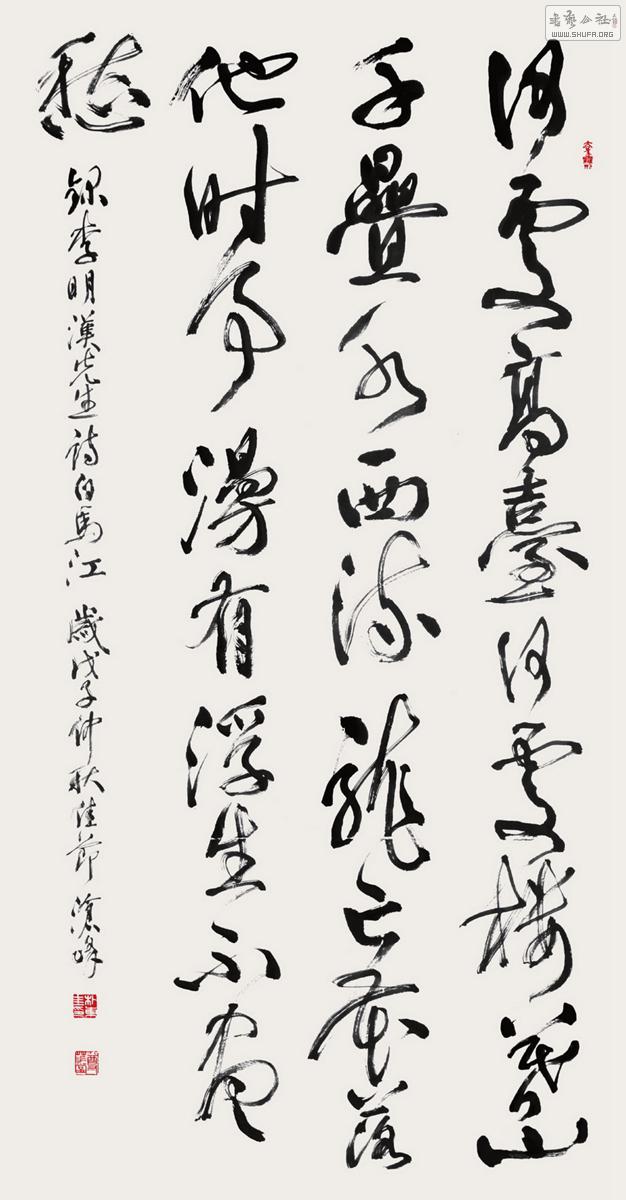 何處高臺何處樓暮山
千疊水西流龍亡花落
他时事漫有浮生不盡
愁
錄李明漢先生詩白馬江 歲戊子仲秋佳節 滄峰
書藝公社
WWW.SHUFA.ORG